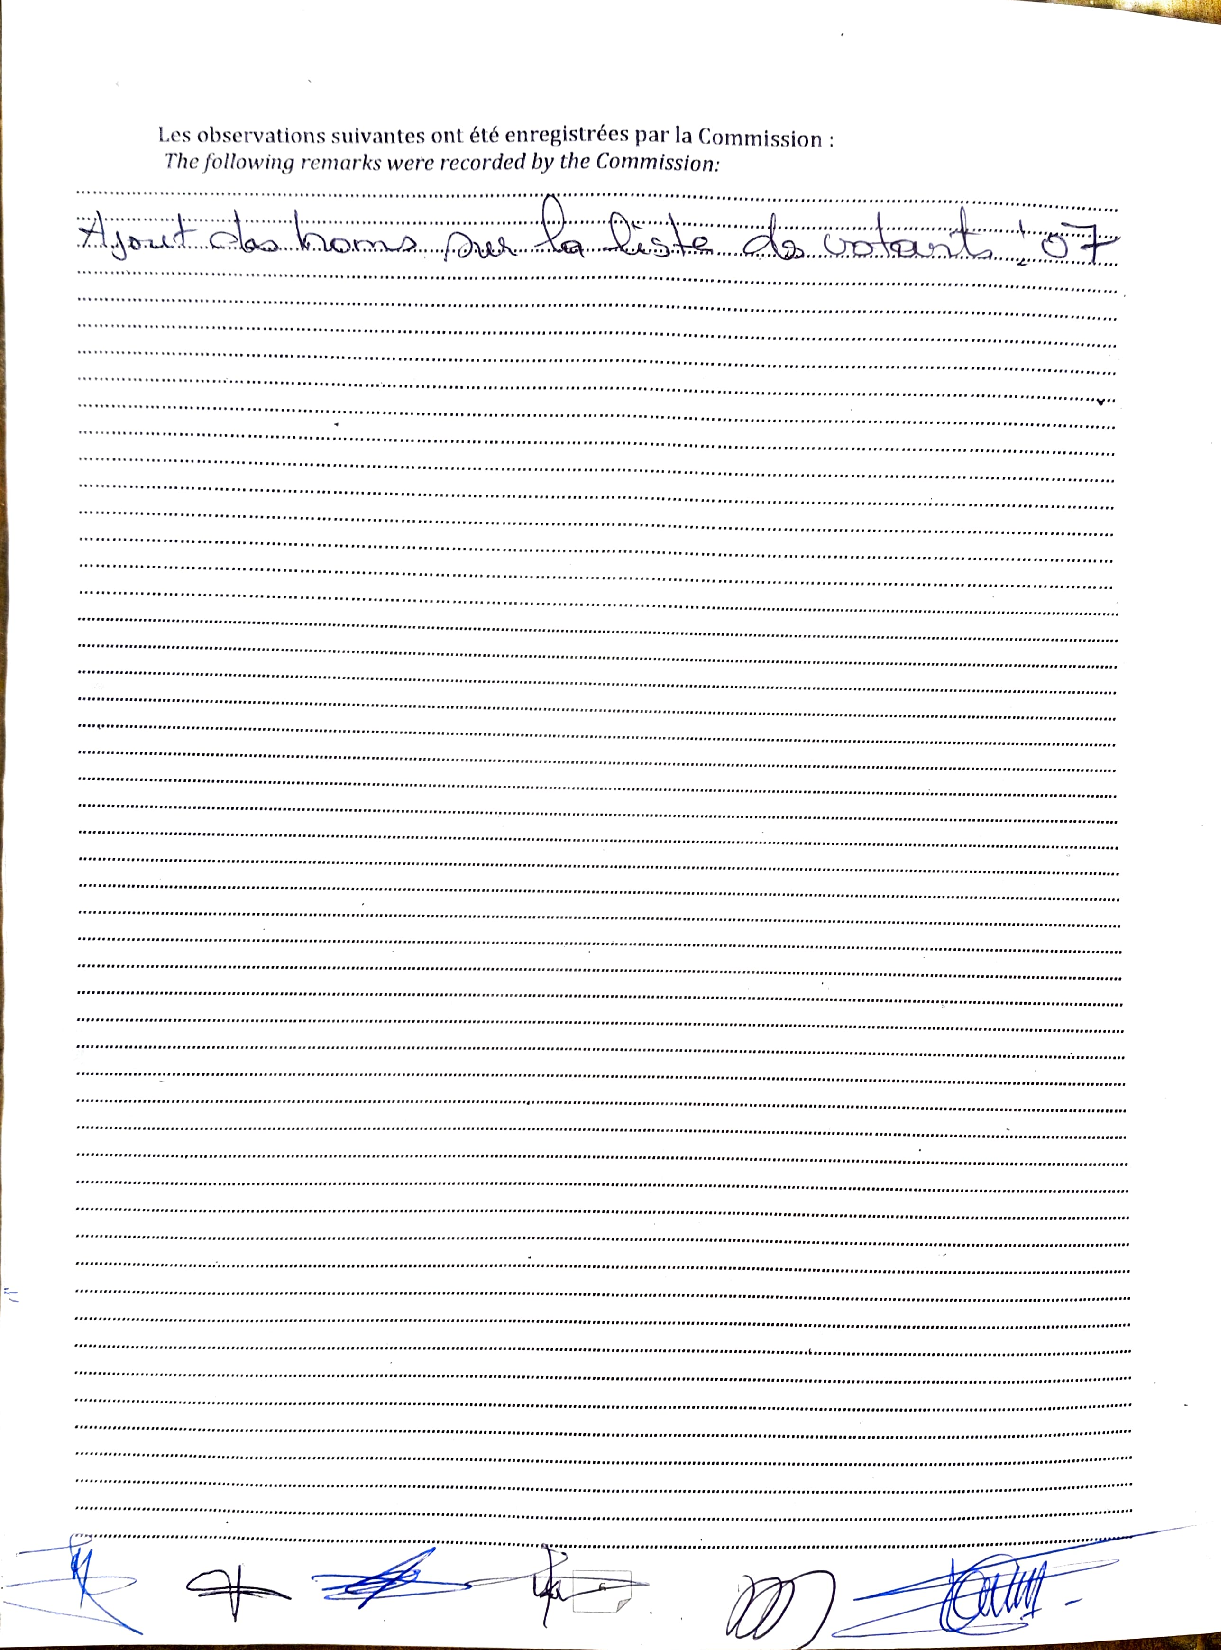 Les observations suivantes ont été enregistrées par la Commission :
The following remarks were recorded by the Commission:
Ajout des noms sur la liste de votants : 07